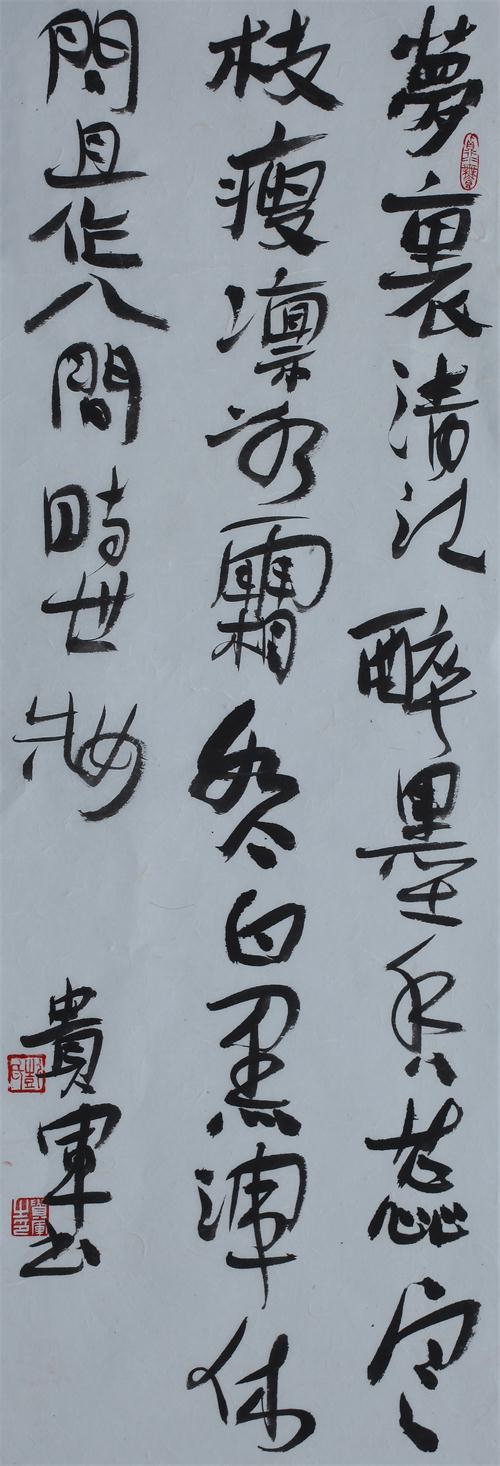 夢裏清江醉墨香蕊寒
枝瘦凛冰霜如今白黑渾休
問且作人間時世妝
貴軍书